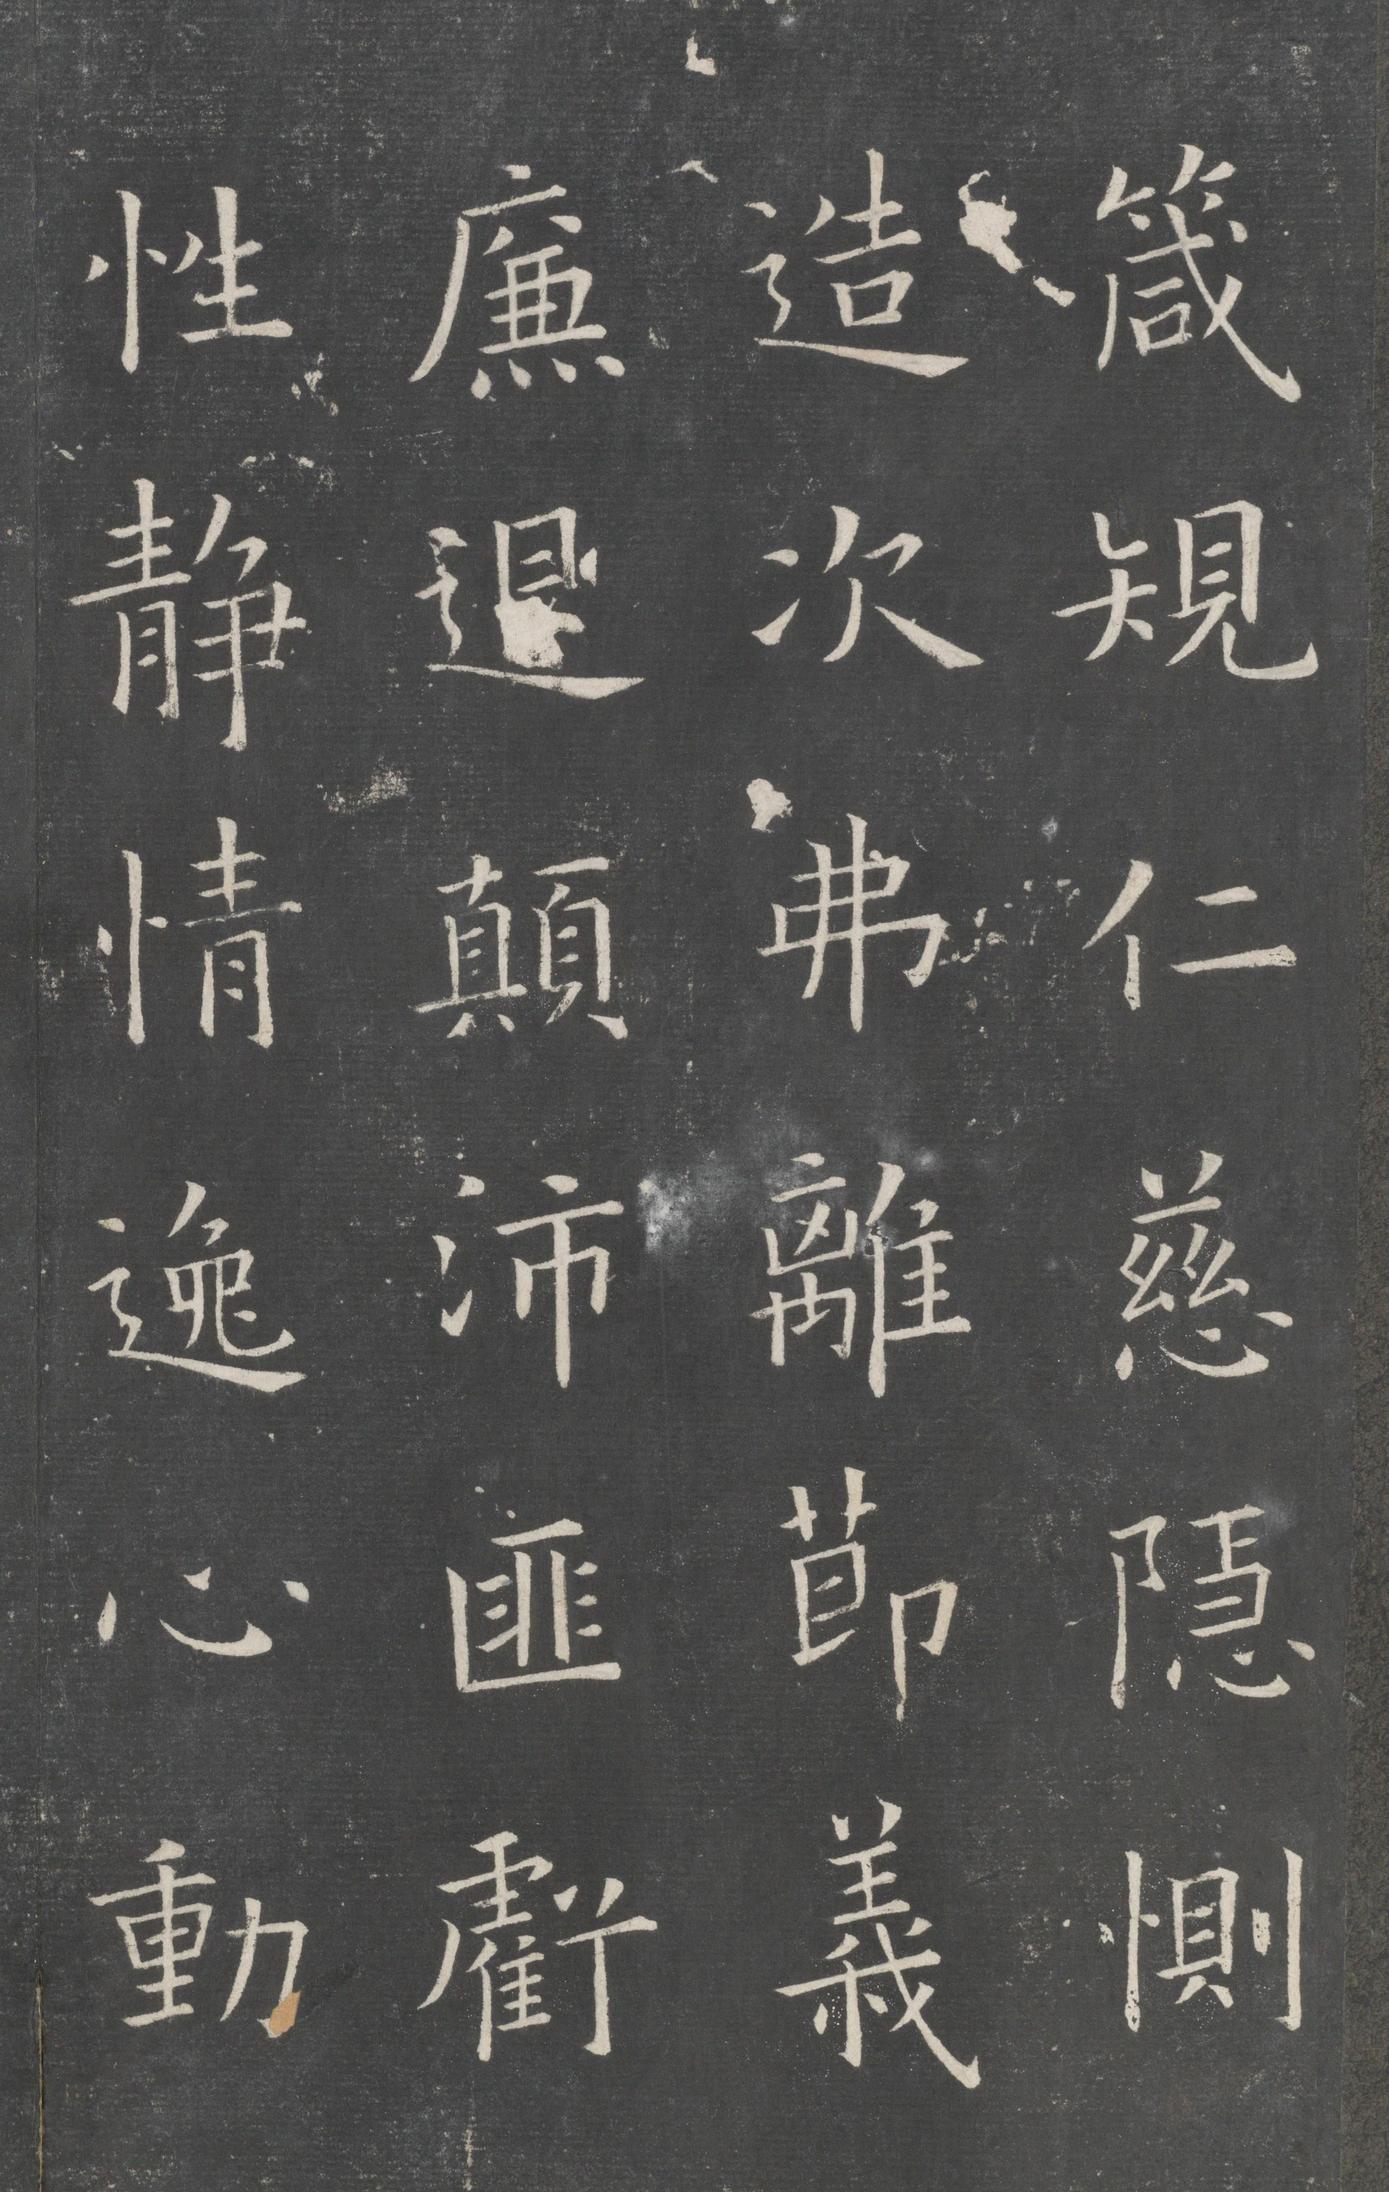 箴規仁慈隱惻
造次弗離節義
廉退顛沛匪虧
性静情逸心動